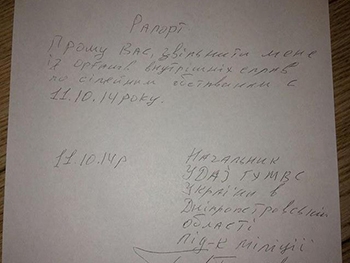 Рапорт
Прошу ВАС, звільнити мене
із органів внутрішніх справ
по сімейним обставинам с
11.10.14 року.
11.10.14р
Начальник
УДАЇ ГУМВС
України в
Дніпропетровській
області
підп-к міліції